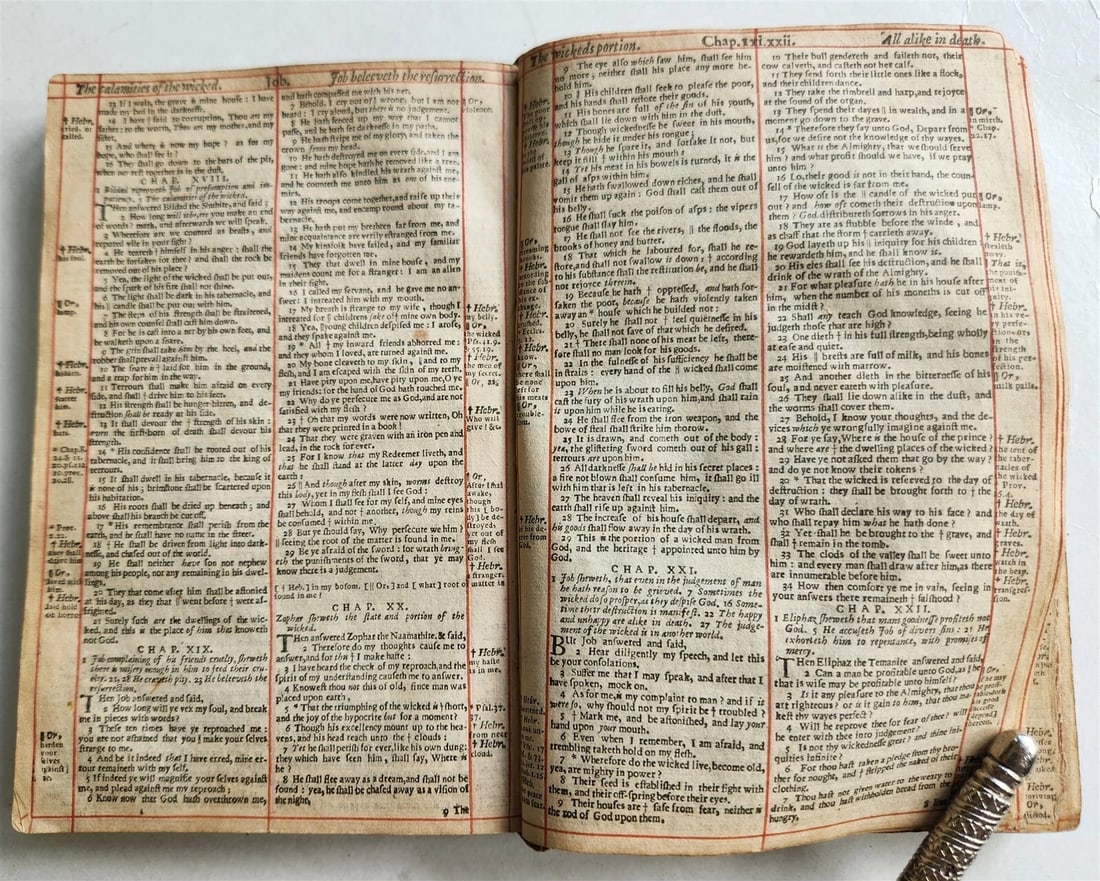 The calamities of the wicked.
Job.
Job beleeveth the reſurrection.
13 If I wait, the grave is mine houſe: I have
made my bed in the darkneſſe.
14 I have ſaid to corruption, Thou art my
father: to the worm, Thou art my mother, and my
ſiſter.
15 And where is now my hope? as for my
hope, who ſhall ſee it?
16 They ſhall go down to the bars of the pit,
when our reſt together is in the duſt.
CHAP. XVIII.
1 Bildad reproveth Job of preſumption and im-
patiency. 5 The calamities of the wicked.
THen anſwered Bildad the Shuhite, and ſaid;
2 How long will it be, ere you make an end
of words? mark, and afterwards we will ſpeak.
3 Wherefore are we counted as beaſts, and
reputed vile in your ſight?
4 He teareth † himſelf in his anger: ſhall the
earth be forſaken for thee? and ſhall the rock be
removed out of his place?
5 Yea, the light of the wicked ſhall be put out,
and the ſpark of his fire ſhall not ſhine.
6 The light ſhall be dark in his tabernacle, and
his || candle ſhall be put out with him.
7 The ſteps of his ſtrength ſhall be ſtraitned,
and his own counſel ſhall caſt him down.
8 For he is caſt into a net by his own feet, and
he walketh upon a ſnare.
9 The grin ſhall take him by the heel, and the
robber ſhall prevail againſt him.
10 The ſnare is † laid for him in the ground,
and a trap for him in the way.
11 Terrours ſhall make him afraid on every
ſide, and ſhall † drive him to his feet.
12 His ſtrength ſhall be hunger-bitten, and de-
ſtruction ſhall be ready at his ſide.
13 It ſhall devour the † ſtrength of his ſkin:
even the firſt-born of death ſhall devour his
ſtrength.
14 * His confidence ſhall be rooted out of his
tabernacle, and it ſhall bring him to the king of
terrours.
15 It ſhall dwell in his tabernacle, becauſe it
is none of his; brimſtone ſhall be ſcattered upon
his habitation.
16 His roots ſhall be dried up beneath; and
above ſhall his branch be cut off.
17 * His remembrance ſhall periſh from the
earth, and he ſhall have no name in the ſtreet.
18 † He ſhall be driven from light into dark-
neſſe, and chaſed out of the world.
19 He ſhall neither have ſon nor nephew
among his people, nor any remaining in his dwel-
lings.
20 They that come after him ſhall be aſtonied
at his day, as they that || went before † were af-
frighted.
21 Surely ſuch are the dwellings of the wic-
ked, and this is the place of him that knoweth
not God.
CHAP. XIX.
1 Job complaining of his friends cruelty, ſheweth
there is miſery enough in him to feed their cru-
elty. 21, 28 He craveth pity. 23 He beleeveth the
reſurrection.
THen Job anſwered and ſaid,
2 How long will ye vex my ſoul, and break
me in pieces with words?
3 Theſe ten times have ye reproched me:
you are not aſhamed that you || make your ſelves
ſtrange to me.
4 And be it indeed that I have erred, mine er-
rour remaineth with my ſelf.
5 If indeed ye will magnifie your ſelves againſt
me, and plead againſt me my reproach;
6 Know now that God hath overthrown me,
and hath compaſſed me with his net.
7 Behold, I cry out of || wrong, but I am not
heard: I cry aloud, but there is no judgement.
8 He hath fenced up my way that I cannot
paſſe, and he hath ſet darkneſſe in my paths.
9 He hath ſtript me of my glory, and taken the
crown from my head.
10 He hath deſtroyed me on every ſide, and I am
gone: and mine hope hath he removed like a tree.
11 He hath alſo kindled his wrath againſt me,
and he counteth me unto him as one of his ene-
mies.
12 His troops come together, and raiſe up their
way againſt me, and encamp round about my ta-
bernacle.
13 He hath put my brethren far from me, and
mine acquaintance are verily eſtranged from me.
14 My kinſfolk have failed, and my familiar
friends have forgotten me.
15 They that dwell in mine houſe, and my
maidens count me for a ſtranger: I am an alien
in their ſight.
16 I called my ſervant, and he gave me no an-
ſwer: I intreated him with my mouth.
17 My breath is ſtrange to my wife, though I
intreated for || childrens ſake of † mine own body.
18 Yea, || young children deſpiſed me: I aroſe,
and they ſpake againſt me.
19 * All † my inward friends abhorred me:
and they whom I loved, are turned againſt me.
20 My bone cleaveth to my ſkin, || and to my
fleſh, and I am eſcaped with the ſkin of my teeth.
21 Have pity upon me, have pity upon me, O ye
my friends; for the hand of God hath touched me.
22 Why do ye perſecute me as God, and are not
ſatisfied with my fleſh?
23 † Oh that my words were now written, Oh
that they were printed in a book!
24 That they were graven with an iron pen and
lead, in the rock for ever.
25 For I know that my Redeemer liveth, and
that he ſhall ſtand at the latter day upon the
earth:
26 || And though after my ſkin, worms deſtroy
this body, yet in my fleſh ſhall I ſee God:
27 Whom I ſhall ſee for my ſelf, and mine eyes
ſhall behold, and not † another, though my reins
be conſumed † within me.
28 But ye ſhould ſay, Why perſecute we him?
|| ſeeing the root of the matter is found in me.
29 Be ye afraid of the ſword: for wrath bring-
eth the puniſhments of the ſword, that ye may
know there is a judgement.
[† Heb.] in my boſom. [|| Or,] and [what] root of
found in me?
CHAP. XX.
Zophar ſheweth the ſtate and portion of the
wicked.
THen anſwered Zophar the Naamathite, & ſaid,
2 Therefore do my thoughts cauſe me to
anſwer, and for this † I make haſte:
3 I have heard the check of my reproach, and the
ſpirit of my underſtanding cauſeth me to anſwer.
4 Knoweſt thou not this of old, ſince man was
placed upon earth,
5 * That the triumphing of the wicked is † ſhort,
and the joy of the hypocrite but for a moment?
6 Though his excellency mount up to the hea-
vens, and his head reach unto the † clouds:
7 Yet he ſhall periſh for ever, like his own dung:
they which have ſeen him, ſhall ſay, Where is
he?
8 He ſhall flee away as a dream, and ſhall not be
found: yea, he ſhall be chaſed away as a viſion of
the night,
9 The
The wickeds portion.
Chap. xxi. xxii.
All alike in death.
9 The eye alſo which ſaw him, ſhall ſee him
no more; neither ſhall his place any more be-
hold him.
10 || His children ſhall ſeek to pleaſe the poor,
and his hands ſhall reſtore their goods.
11 His bones are full of the ſin of his youth,
which ſhall lie down with him in the duſt.
12 Though wickedneſſe be ſweet in his mouth,
though he hide it under his tongue;
13 Though he ſpare it, and forſake it not, but
keep it ſtill † within his mouth:
14 Yet his meat in his bowels is turned, it is the
gall of aſps within him.
15 He hath ſwallowed down riches, and he ſhall
vomit them up again: God ſhall caſt them out of
his belly.
16 He ſhall ſuck the poiſon of aſps: the vipers
tongue ſhall ſlay him.
17 He ſhall not ſee the rivers, || the floods, the
brooks of honey and butter.
18 That which he laboured for, ſhall he re-
ſtore, and ſhall not ſwallow it down: † according
to his ſubſtance ſhall the reſtitution be, and he ſhall
not rejoyce therein.
19 Becauſe he hath † oppreſſed, and hath for-
ſaken the poor, becauſe he hath violently taken
away an houſe which he builded not:
20 Surely he ſhall not † feel quietneſſe in his
belly, he ſhall not ſave of that which he deſired.
21 † There ſhall none of his meat be left, there-
fore ſhall no man look for his goods.
22 In the fulneſſe of his ſufficiency he ſhall be
in ſtraits: every hand of the || wicked ſhall come
upon him.
23 When he is about to fill his belly, God ſhall
caſt the fury of his wrath upon him, and ſhall rain
it upon him while he is eating.
24 He ſhall flee from the iron weapon, and the
bowe of ſteal ſhall ſtrike him thorow.
25 It is drawn, and cometh out of the body:
yea, the gliſtering ſword cometh out of his gall:
terrours are upon him.
26 All darkneſſe ſhall be hid in his ſecret places:
a fire not blown ſhall conſume him, it ſhall go ill
with him that is left in his tabernacle.
27 The heaven ſhall reveal his iniquity: and the
earth ſhall riſe up againſt him.
28 The increaſe of his houſe ſhall depart, and
his goods ſhall flow away in the day of his wrath.
29 This is the portion of a wicked man from
God, and the heritage † appointed unto him by
God.
CHAP. XXI.
1 Job ſheweth, that even in the judgement of man
he hath reaſon to be grieved. 7 Sometimes the
wicked do ſo proſper, as they deſpiſe God. 16 Some-
time their deſtruction is manifeſt. 22 The happy
and unhappy are alike in death. 27 The judge-
ment of the wicked is in another world.
BUt Job anſwered and ſaid,
2 Hear diligently my ſpeech, and let this
be your conſolations.
3 Suffer me that I may ſpeak, and after that I
have ſpoken, mock on.
4 As for me, is my complaint to man? and if it
were ſo, why ſhould not my ſpirit be † troubled?
5 † Mark me, and be aſtoniſhed, and lay your
hand upon your mouth.
6 Even when I remember, I am afraid, and
trembling taketh hold on my fleſh.
7 * Wherefore do the wicked live, become old,
yea, are mighty in power?
8 Their ſeed is eſtabliſhed in their ſight with
them, and their off-ſpring before their eyes.
9 Their houſes are † ſafe from fear, neither is
the rod of God upon them.
10 Their bull gendereth and faileth not, their
cow calveth, and caſteth not her calf.
11 They ſend forth their little ones like a flock,
and their children dance.
12 They take the timbrell and harp, and rejoyce
at the ſound of the organ.
13 They ſpend their dayes || in wealth, and in a
moment go down to the grave.
14 * Therefore they ſay unto God, Depart from
us, for we deſire not the knowledge of thy wayes.
15 What is the Almighty, that we ſhould ſerve
him? and what profit ſhould we have, if we pray
unto him?
16 Lo, their good is not in their hand, the coun-
ſell of the wicked is far from me.
17 How oft is the || candle of the wicked put
out? and how oft cometh their deſtruction upon
them? God diſtributeth ſorrows in his anger.
18 They are as ſtubble before the winde, and
as chaff that the ſtorm † carrieth away.
19 God layeth up his || iniquity for his children:
he rewardeth him, and he ſhall know it.
20 His eyes ſhall ſee his deſtruction, and he ſhall
drink of the wrath of the Almighty.
21 For what pleaſure hath he in his houſe after
him, when the number of his moneths is cut off
in the midſt?
22 Shall any teach God knowledge, ſeeing he
judgeth thoſe that are high?
23 One dieth † in his full ſtrength, being wholly
at eaſe and quiet.
24 His || breſts are full of milk, and his bones
are moiſtned with marrow.
25 And another dieth in the bitterneſſe of his
ſoul, and never eateth with pleaſure.
26 They ſhall lie down alike in the duſt, and
the worms ſhall cover them.
27 Behold, I know your thoughts, and the de-
vices which ye wrongfully imagine againſt me.
28 For ye ſay, Where is the houſe of the prince?
and where are † the dwelling places of the wicked?
29 Have ye not aſked them that go by the way?
and do ye not know their tokens?
30 * That the wicked is reſerved to the day of
deſtruction: they ſhall be brought forth to † the
day of wrath.
31 Who ſhall declare his way to his face? and
who ſhall repay him what he hath done?
32 Yet ſhall he be brought to the † grave, and
ſhall † remain in the tomb.
33 The clods of the valley ſhall be ſweet unto
him: and every man ſhall draw after him, as there
are innumerable before him.
34 How then comfort ye me in vain, ſeeing in
your anſwers there remaineth † falſhood?
CHAP. XXII.
1 Eliphaz ſheweth that mans goodneſſe profiteth not
God. 5 He accuſeth Job of divers ſins: 21 He
exhorteth him to repentance, with promiſes of
mercy.
THen Eliphaz the Temanite anſwered and ſaid,
2 Can a man be profitable unto God, as he
that is wiſe may be profitable unto himſelf?
3 Is it any pleaſure to the Almighty, that thou
art righteous? or is it gain to him, that thou ma-
keſt thy wayes perfect?
4 Will he reprove thee for fear of thee? will
he enter with thee into judgement?
5 Is not thy wickedneſſe great? and thine ini-
quities infinite?
6 For thou haſt taken a pledge from thy bro-
ther for nought, and † ſtripped the naked of their
clothing.
7 Thou haſt not given water to the weary to
drink, and thou haſt withholden bread from the
hungry.